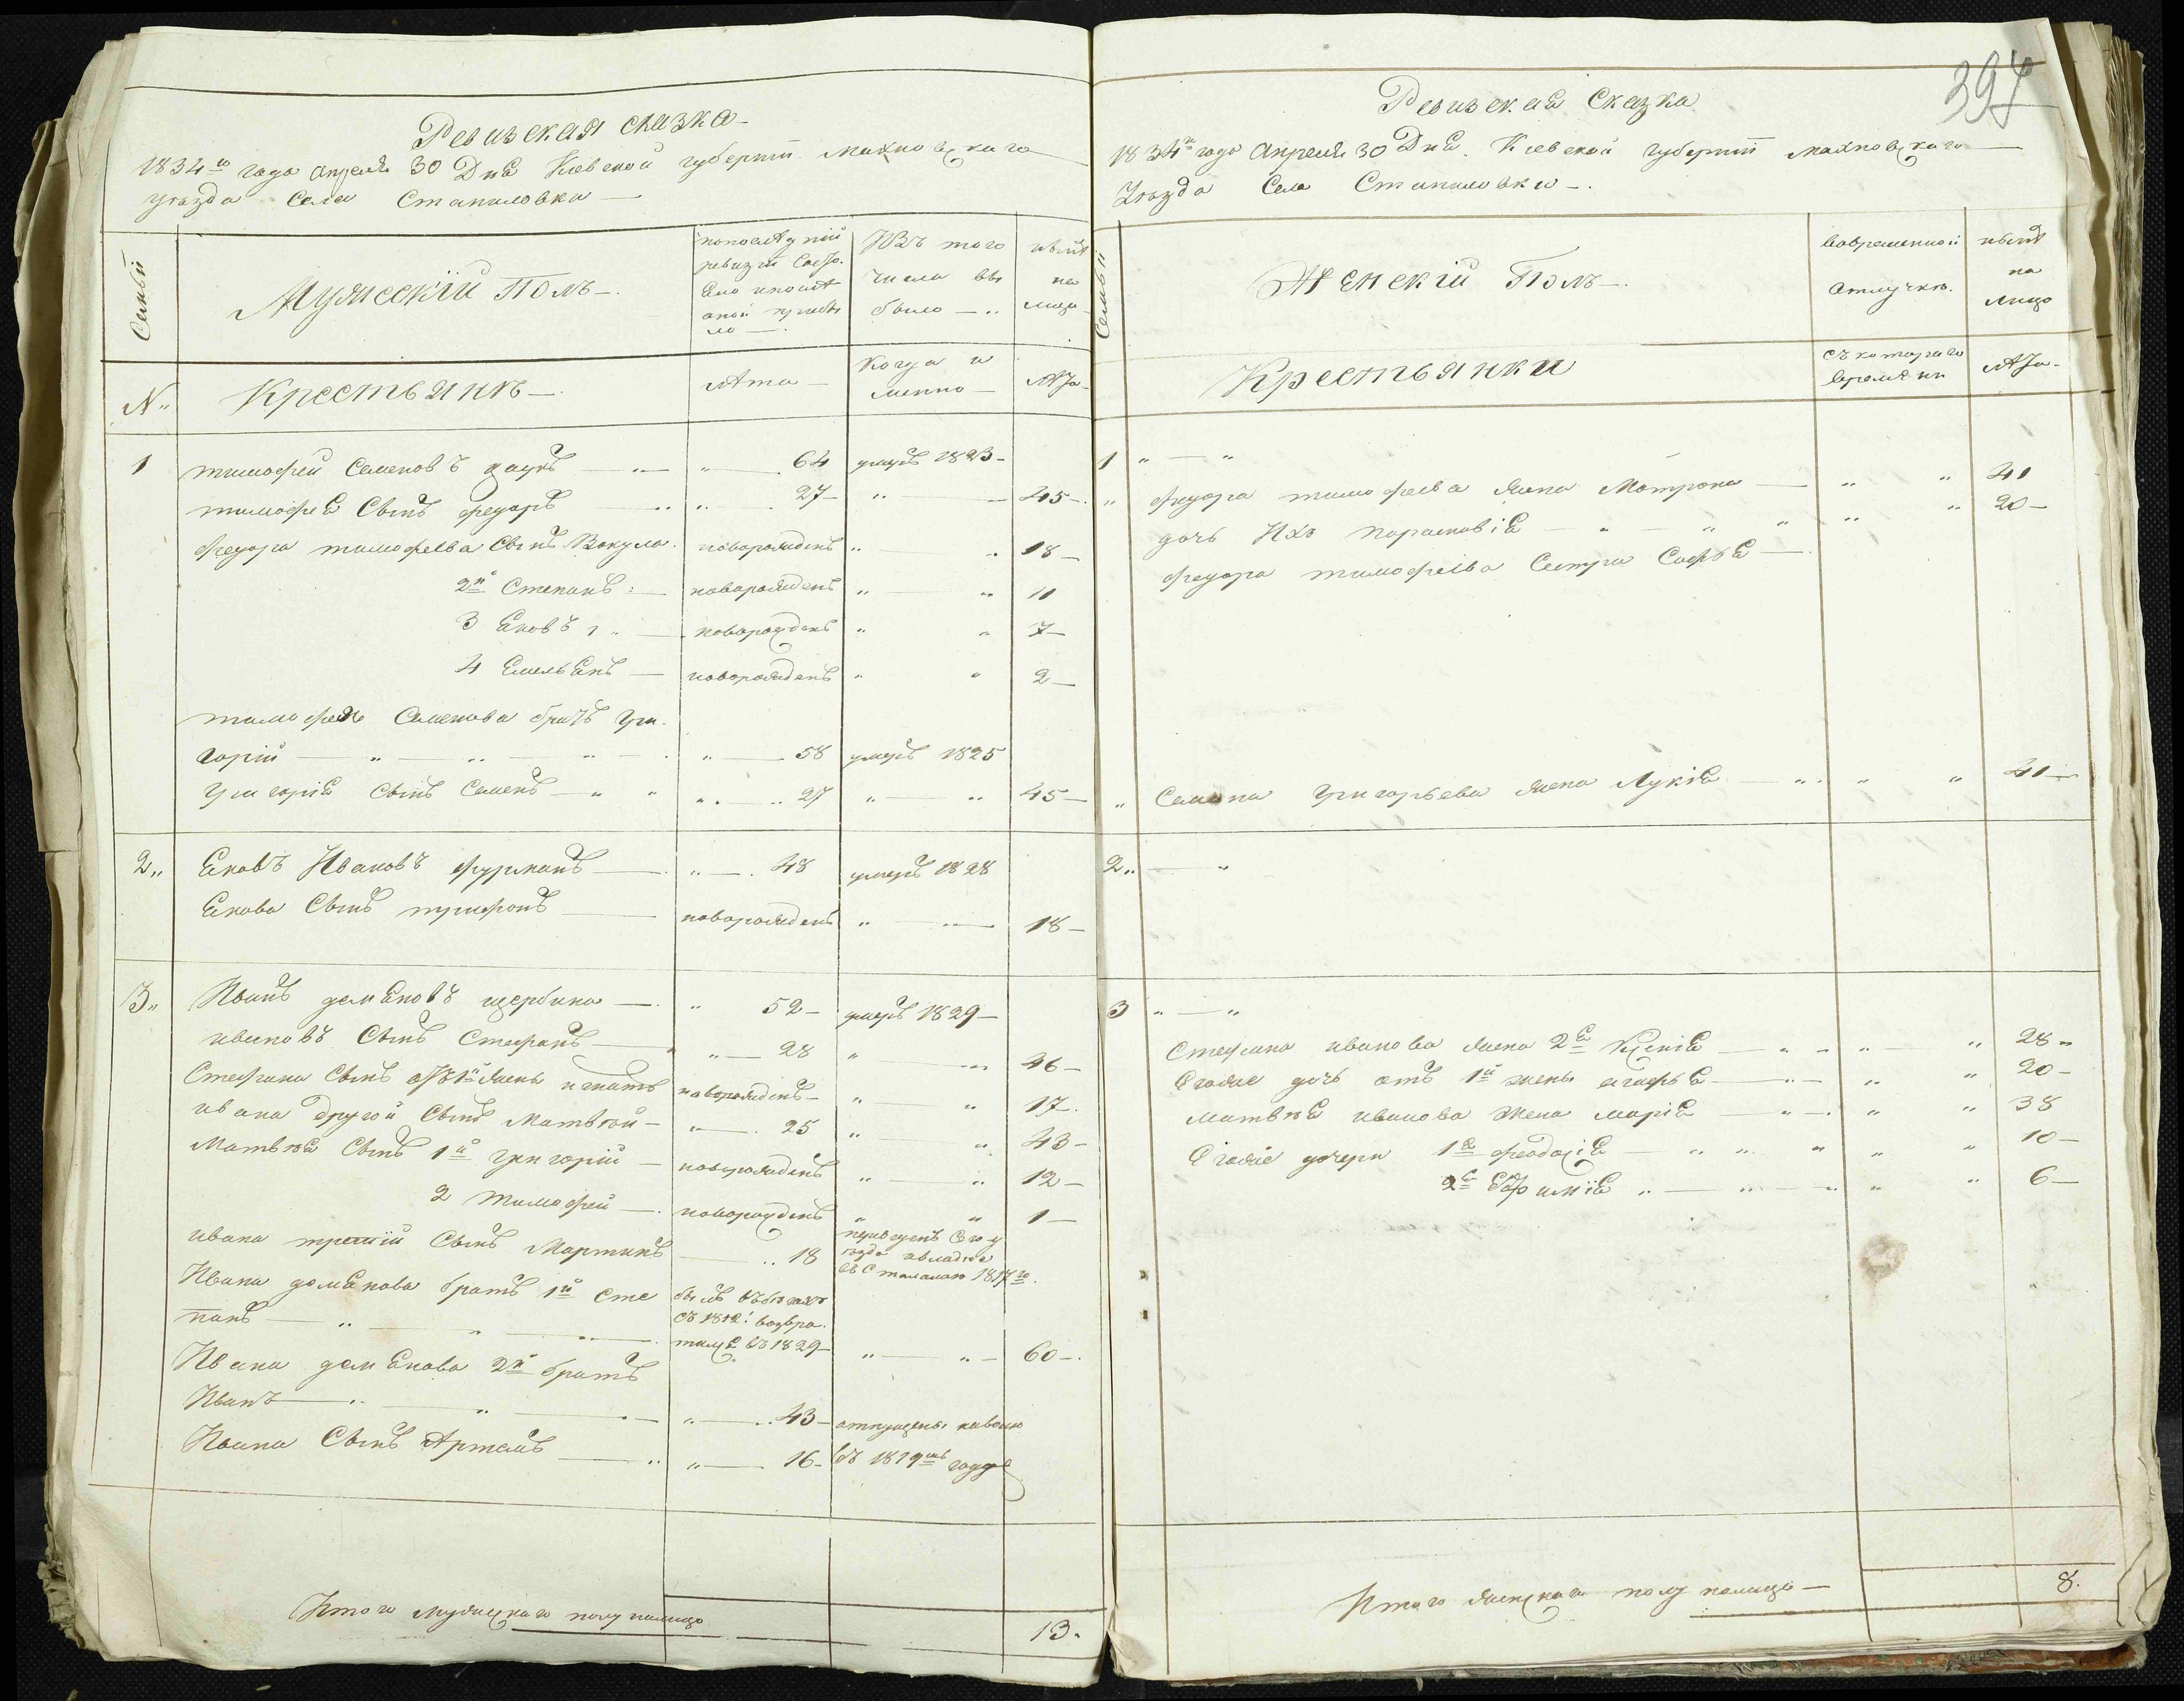 Ревизская сказка
1834го года апреля 30 Дня Киевской губернии Махновскаго
уезда Села Стапиловки
Семьи
Мужеский Полъ
по последней
ревизии состо-
яло и после
оной прибы
ло
Изъ того
числа вы
было
ныне
на
лицо
№
Крестьяне
лета
Когда и
менно
лета
1 тимофей Семеновъ 64 умеръ 1823
тимофея Сынъ федоръ 27 45
федора тимофеева Сынъ Вакула новорожденъ 18
2й Степанъ новорожденъ 11
3 Яковъ новорожденъ 7
4 Емельянъ новорожденъ 2
тимофея Семенова братъ Гри
горий 58 умеръ 1825
Григория Сынъ Семенъ 27 45
2 Яковъ Ивановъ фурманъ 48 умеръ 1828
Якова Сынъ трифонъ новорожденъ 18
3 Иванъ демяновъ щербина 52 умеръ 1829
ивановъ Сынъ Стефанъ 28 46
Стефана Сынъ отъ 1й жены игнатъ новорожденъ 17
ивана другой Сынъ Матвей 25 43
Матвея Сынъ 1й григорий новорожденъ 12
2 тимофей новорожденъ 1
ивана третий Сынъ Мартинъ 18 1817го
Ивана демянова братъ 1й Сте
панъ былъ въ бегахъ
съ 1812 возвра
тился въ 1829 60
Ивана демянова 2й братъ
Иванъ 43 отпущены на волю
Ивана Сынъ Артемъ 16 въ 1819мъ году
Итого мужескаго полу налицо 13.
397
Ревизская Сказка
1834го года Апреля 30 Дня Киевской губернии Махновскаго
Уезда Села Стапиловки
Семьи
Женский Полъ
во временной
отлучке
ныне
на
лицо
Крестьянки
съ котораго
времени
лета
1
федора тимофеева жена Мотрона 41
дочь Ихъ парасковия 20
федора тимофеева Сестра Софья
Семена Григорьева жена Лукия 41
2
3
Стефана иванова жена 2я Ксения 28
Егоже дочь отъ 1й жены агафья 20
матвея иванова жена мария 38
Егоже дочери 1я феодосия 10
2я Ефимия 6
Итого женскаго полу налицо 8.